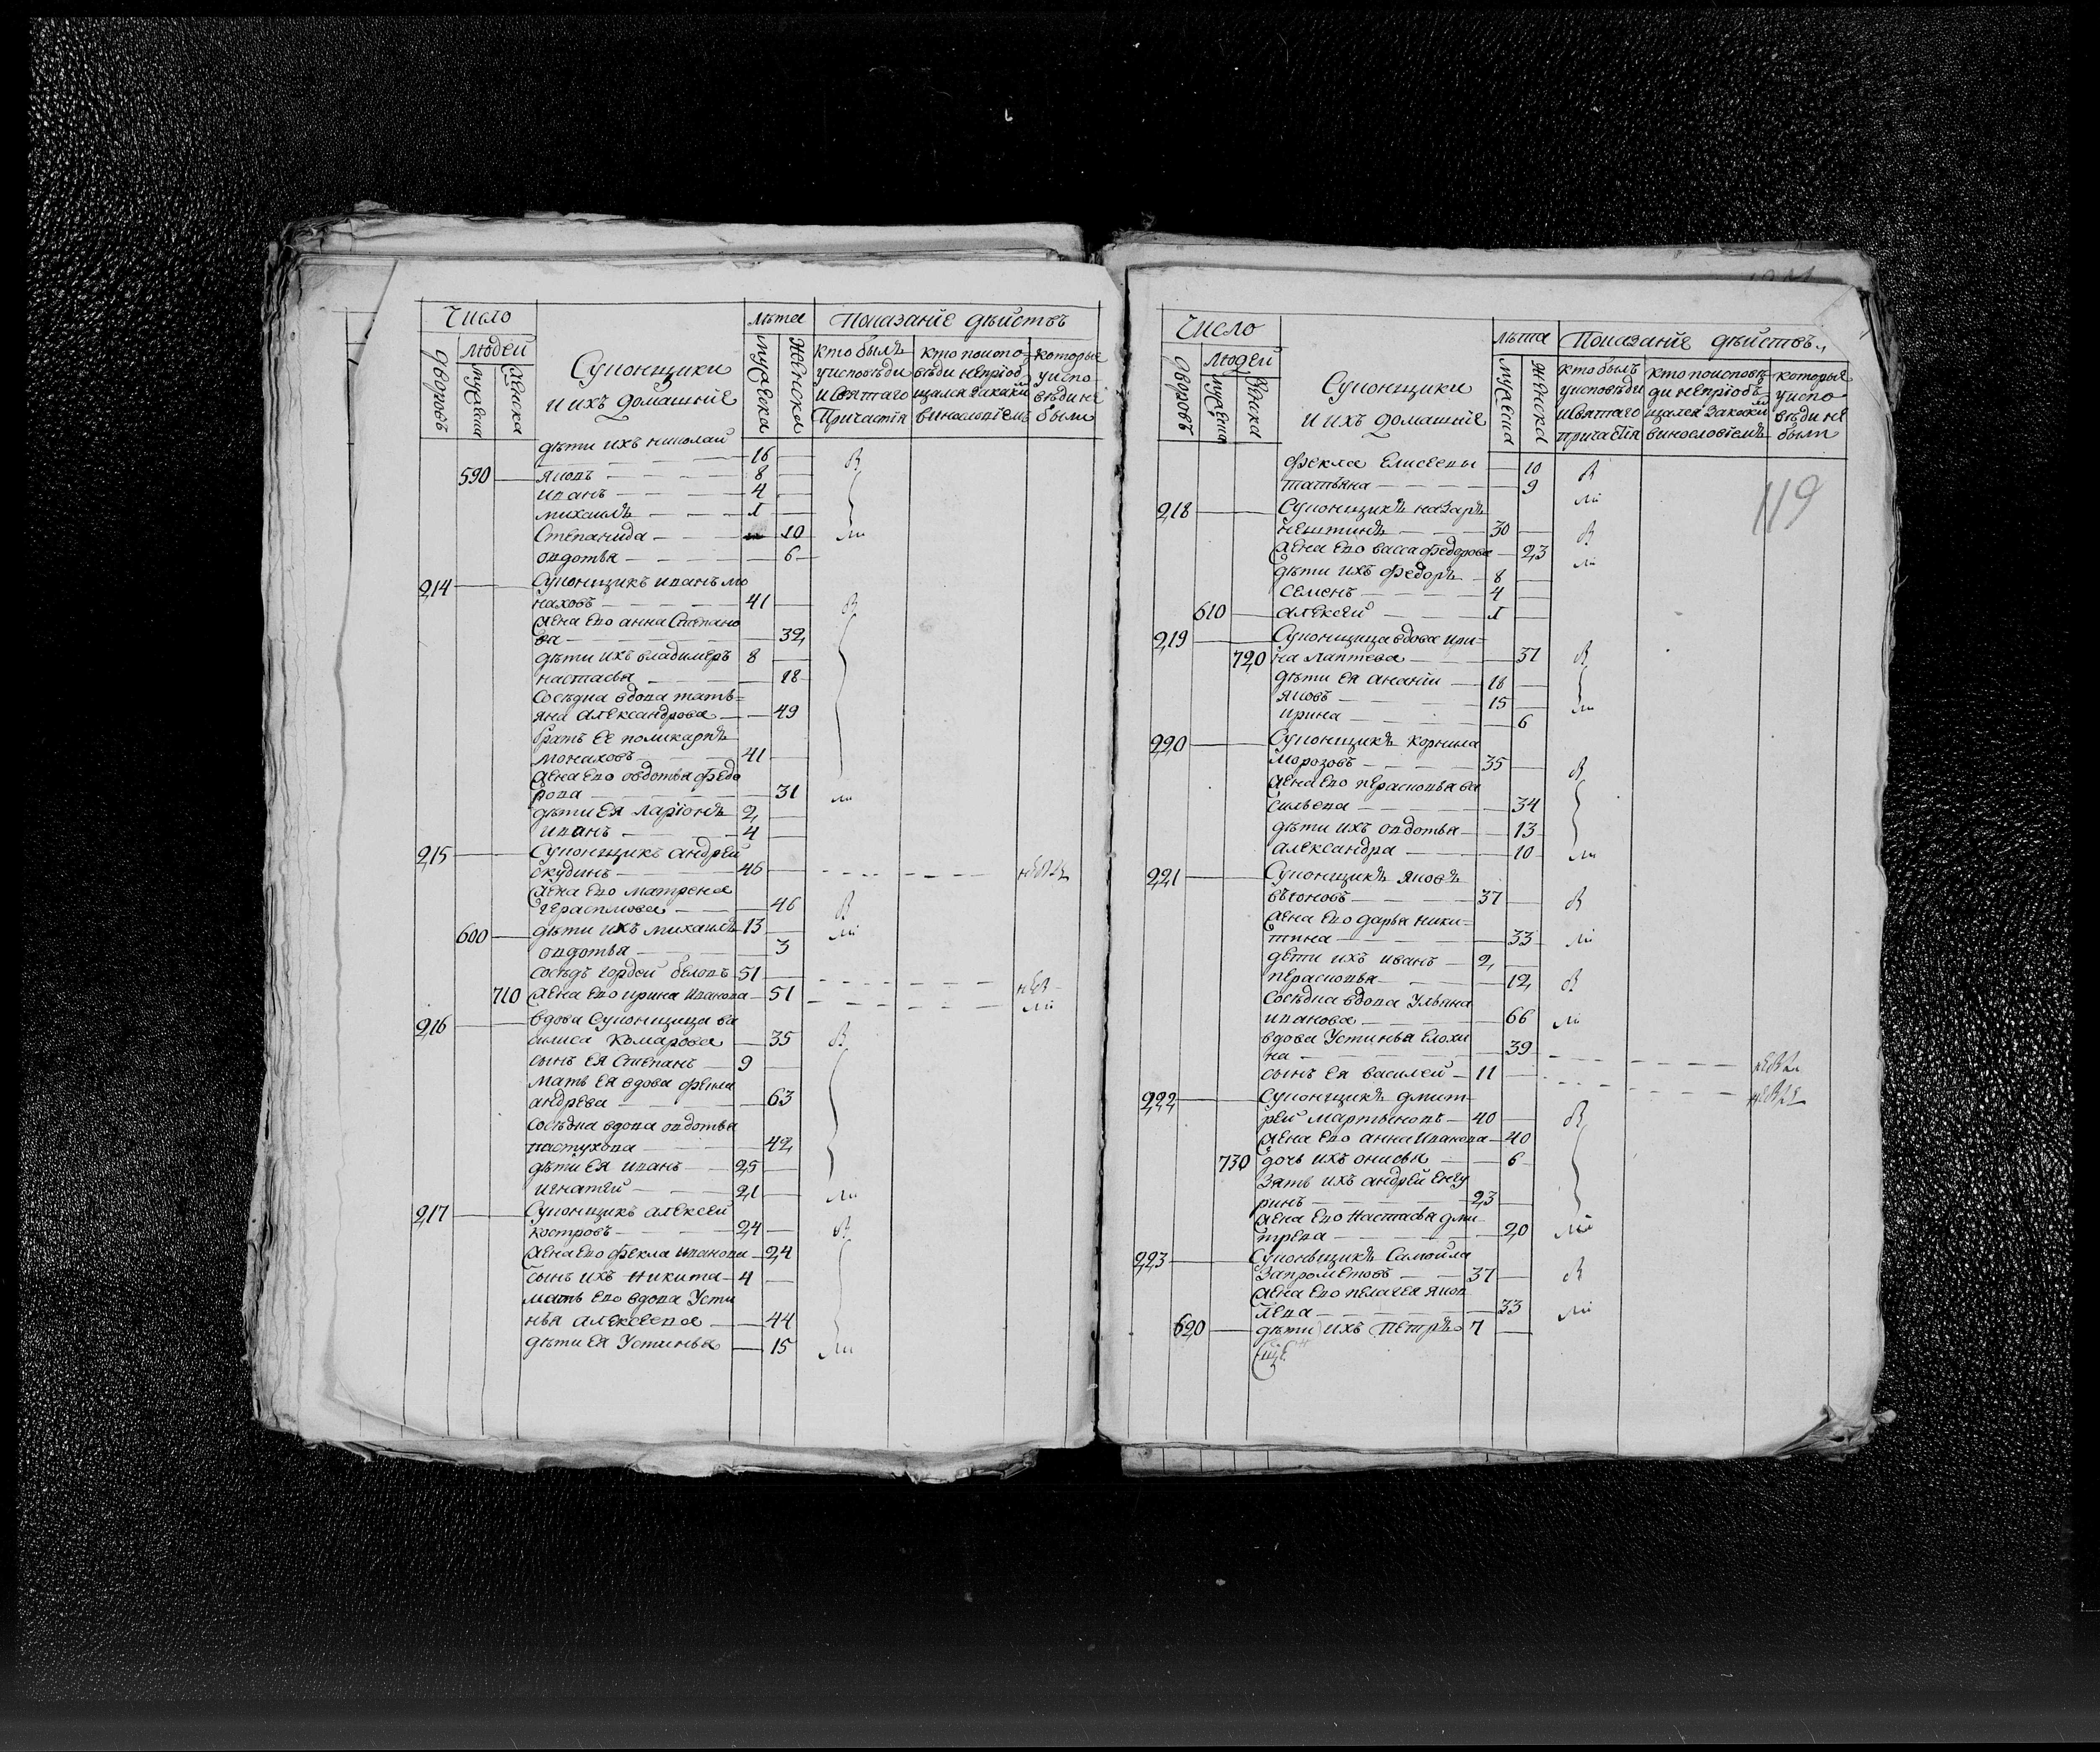 Число
Лѣта Показание дѣиствъ
дворовъ
людей
мужеска
женска
Суконщики
и ихъ домашние
мужеска
женска
кто былъ
у исповѣди
и святаго
Причастия
кто испо
вѣди не приоб
щался за каким
винословием
которые
у испо
вѣди не
были
дѣти ихъ николай
16
590 яковъ 8
иванъ 4
михаилъ 1
Степанида 10
овдотья 6
214 Суконщикъ иванъ мо
наховъ 41
жена ево анна Степано
ва 32
дѣти ихъ владимеръ 8
настасья 18
Сосѣдка вдова тать=
яна александрова 49
братъ ее поликарпъ
монаховъ 41
жена ево овдотья федо
рова 31
дѣти ея ларионъ 2
иванъ 4
215 Суконщикъ андрей
окудинъ 46
жена ево матрена
герасимова 46
600 дѣти ихъ михаилъ 13
овдотья 3
сосѣдъ гордей беловъ 51
710 жена ево ирина иванова 51
216 вдова Суконщица ва
силиса комарова 35
сынъ ея Степанъ 9
мать ея вдова фекла
андрева 63
сосѣдка вдова овдотья
пастухова 42
дѣти ея иванъ 25
игнатей 21
217 Суконщикъ алексей
костровъ 24
жена ево фекла иванова 24
сынъ ихъ никита 4
мать ево вдова Усти
нья алексеева 44
дѣти ея Устинья 15
Число
лѣта Показание дѣиствъ
дворовъ
людей
мужеска
женска
Суконщики
и ихъ домашние
мужеска
женска
кто былъ
у исповѣди
и святаго
причастия
кто исповѣ
ди не приобъ
щался за каким
винословиемъ
которые
у испо
вѣди не
были
119
фекла Елисеевы 10
татьяна 9
218 Суконщикъ назаръ
30
жена ево васса федорова 23
дѣти ихъ федоръ 8
семенъ 4
610 алексей 1
219 Суконщица вдова ири=
720 на лаптева 37
дѣти ея анании 18
яковъ 15
ирина 6
220 Суконщикъ корнила
морозовъ 35
жена ево перасковья ва
сильева 34
дѣти ихъ овдотья 13
александра 10
221 Суконщикъ яковъ
вьюновъ 37
жена ево дарья ники=
тина 33
дети ихъ иванъ 2
перасковья 12
Сосѣдка вдова Ульяна
иванова 66
вдова Устинья Елохи
на 39
сынъ ея василей 11
222 Суконщикъ дмит
рей мартыновъ 40
жена ево анна иванова 40
730 дочь ихъ онисья 6
Зять ихъ андрей Енгу
ринъ 23
жена ево Настасья дми
трева 20
223 Суконьщикъ Самойла
Запрометовъ 37
жена ево пелагея яков
лева 33
620 дѣти ихъ Петръ 7